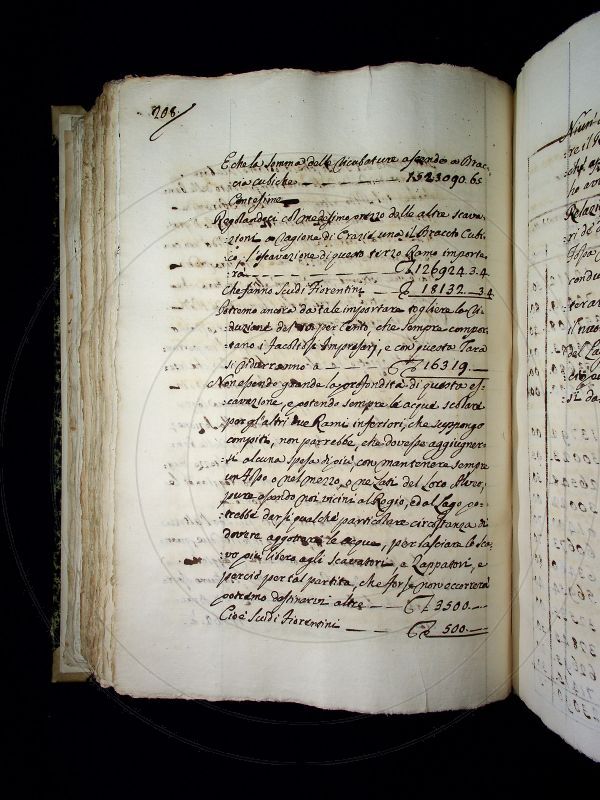 208.
E che la somma delle Cicubature ascende a Brac-
cia cubiche 1523090.65
Centesime
Regolandoci col medesimo prezzo delle altre scava-
zioni a ragione di Crazia una il Braccio Cubi-
co, l'escavazione di questo terzo Ramo importe-
rà 126924.3.4
Che fanno Scudi Fiorentini 18132.-.3.4
Potremo ancora da tale importare togliere la
duzione del 10 per Cento, che sempre compor-
tano i facoltosi Impresarj, e con questa Tara
si ridurranno a 16319.-
Non essendo grande la profondità di questa es-
cavazione, e potendo sempre le acque scolare
per gl'altri due Rami inferiori, che suppongo
compiti, non parrebbe, che dovesse aggiugner-
si alcuna spesa di più, con mantenere sempre
un Aspo o nel mezzo, o ne Lati del Loro Alveo,
pure essendo noi vicini al Rogio, ed al Lago po-
trebbe darsi qualche particolare circostanza di
dovere aggottare le acque, per lasciare lo Sca-
vo più libero agli Scavatori, e Zappatori, e
perciò per tal partita, che forse non occorrerà
potremo destinarvi altre 3500.-
Cioè Scudi Fiorentini 500.-
Niun
Relazio
ri de